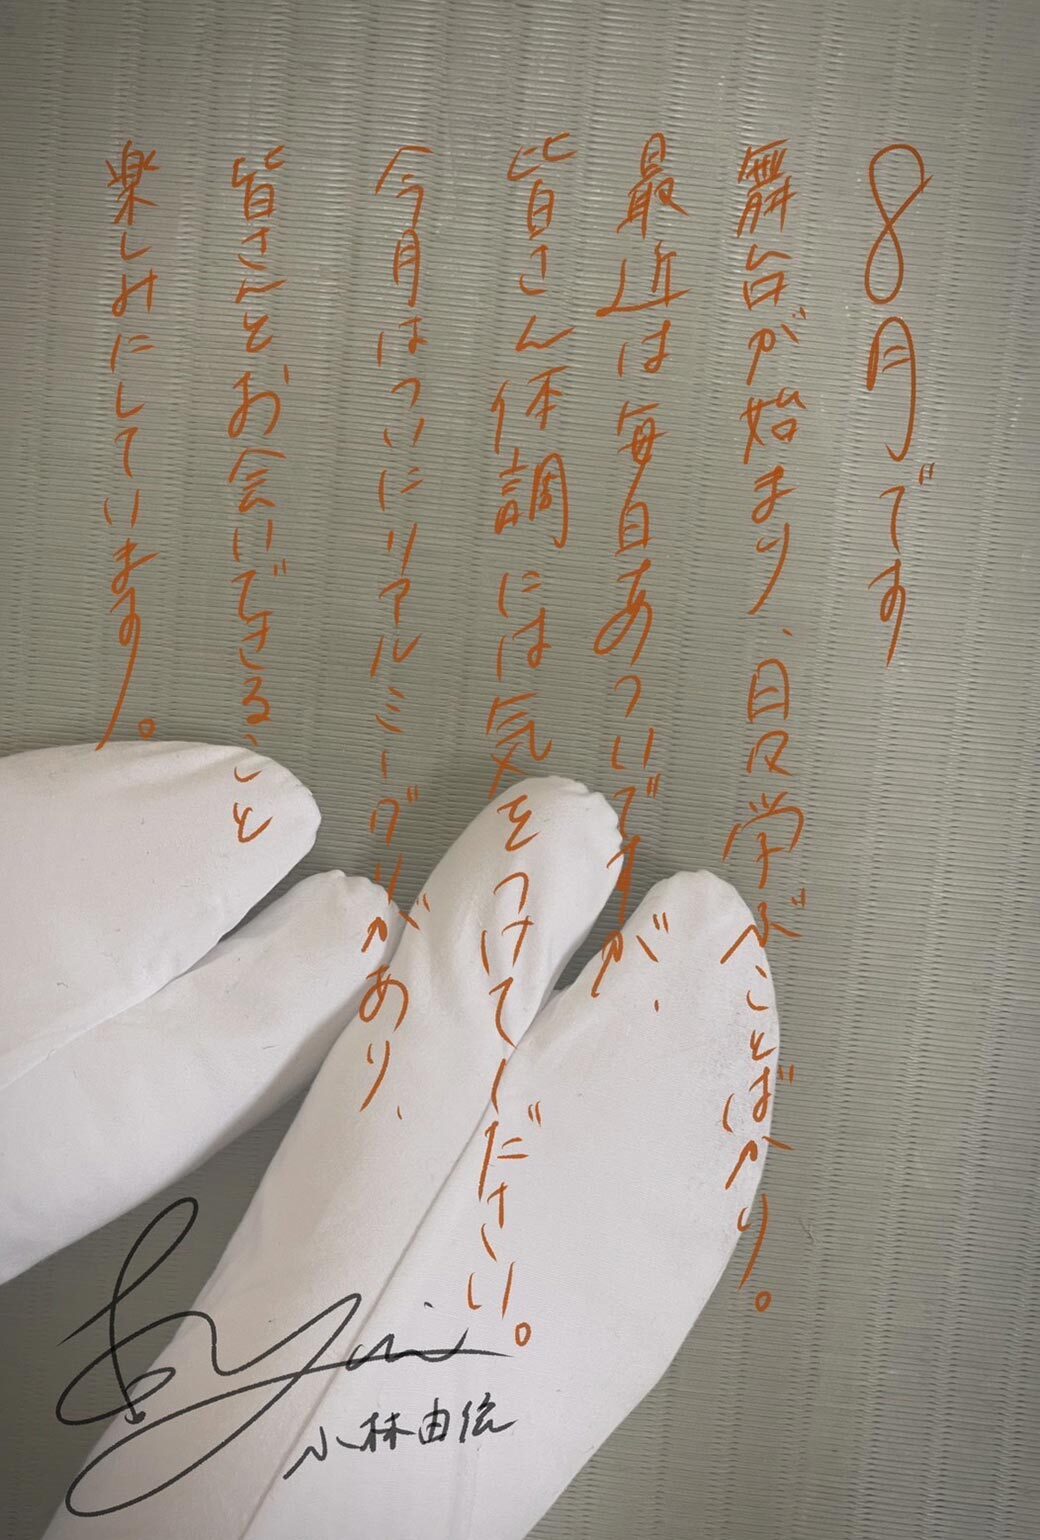 8月です
舞台が始まり、日々学ぶことばかり。
最近は毎日あついですが、
皆さん体調には気をつけてください。
今月はついにリアルミーグリがあり、
皆さんとお会いできること
楽しみにしています。
Yui
小林由依